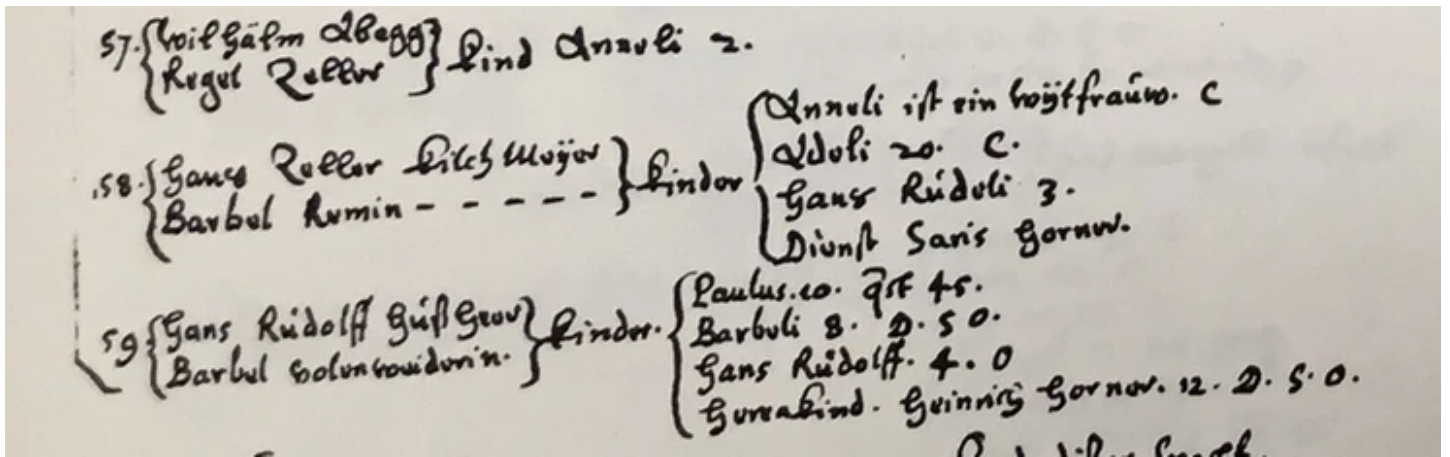 57. Wilhälm Abegg
Regel Zeller
kind Anneli 2.
58. Hans Zeller kilch Meÿer
Barbel Remin - - - - -
kinder
Anneli ist ein wÿtfrauw. C
Adeli 20. C.
Hans Rúdeli 3.
Dienst Horner.
59 Hans Rúdolff
Barbel
kinder.
Paulus. 10. 45.
Barbeli 8. D. S O.
Hans Rúdolff. 4. O
Heinrich Horner. 12. D. S. O.